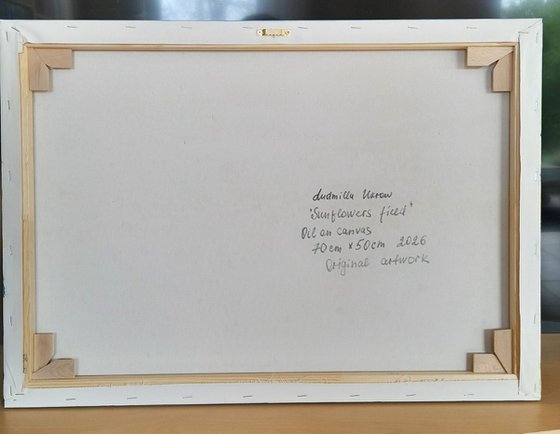 Ludmilla Ukrow
"Sunflowers field"
Oil on canvas
70cm x 50cm 2026
Original artwork